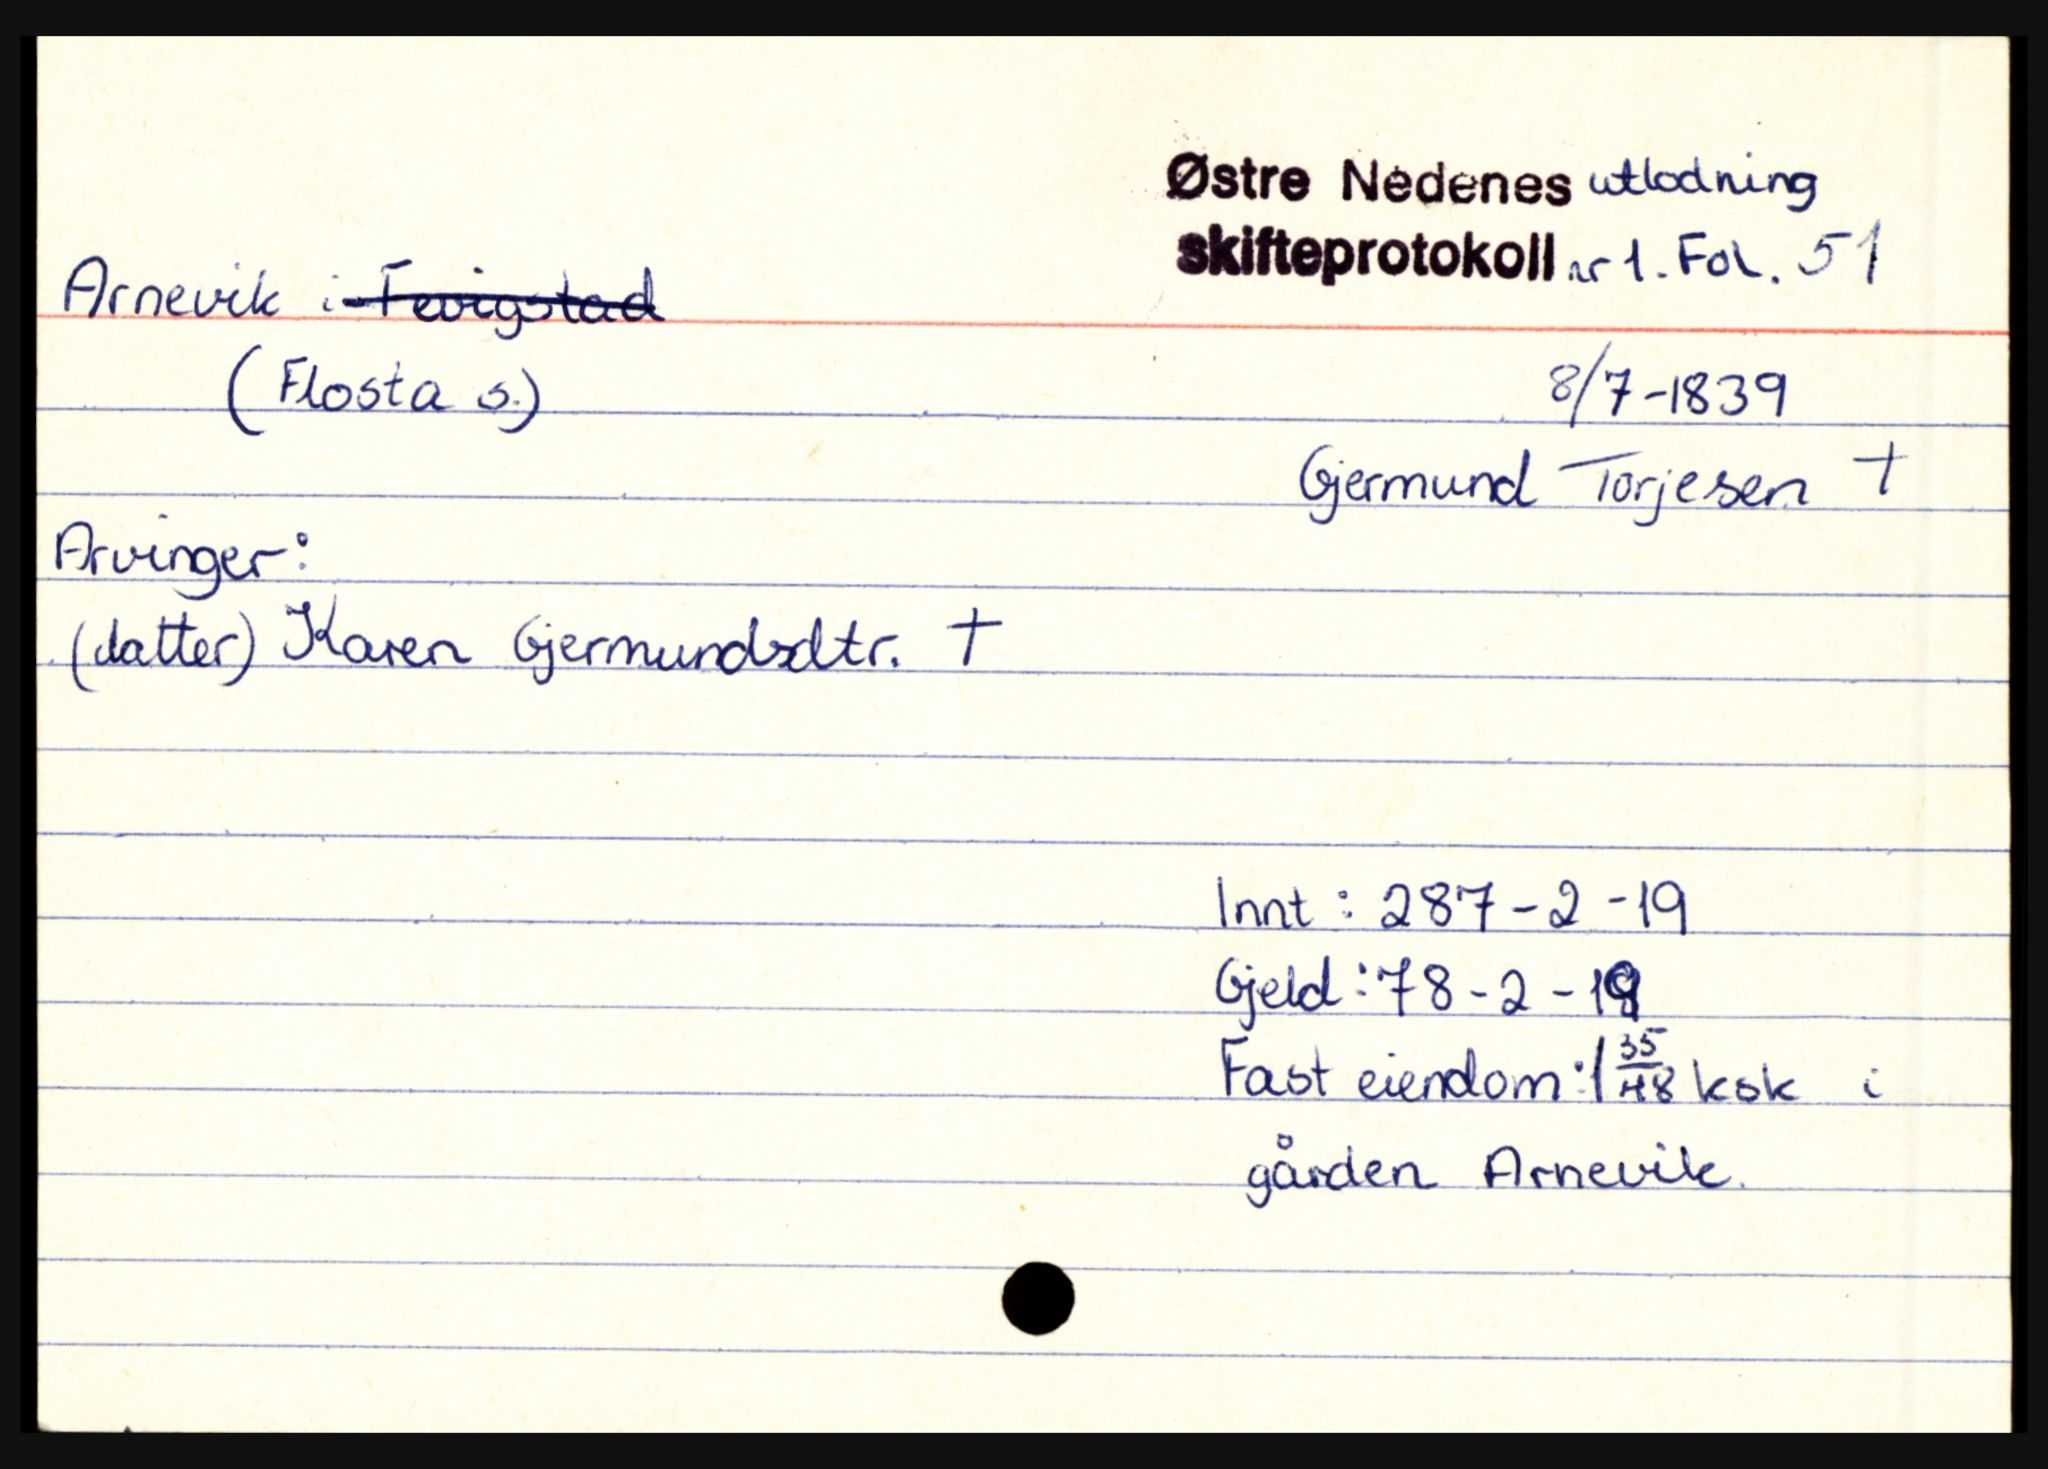 Østre Nedenes utlodning
skifteprotokoll nr 1. Fol. 51
Arnevik i Fevigstad
(Flosta s.)
8/7-1839
Gjermund Torjesen †
Arvinger:
(datter) Karen Gjermundsdtr. †
Innt: 287-2-19
Gjeld: 78-2-19
Fast eiendom: 1 35/48 ksk i
gården Arnevik.